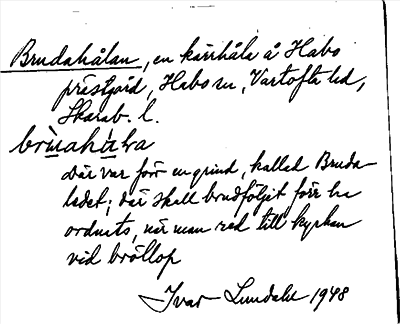 Brudahålan, en kärrhåla å Habo
prästgård, Habo sn, Vartofta hd,
Skarab. l.
brùahàɫna
där var förr en grind, kallad Bruda-
ledet; där skall brudföljet förr ha
ordnats, när man red till kyrkan
vid bröllop
Ivar Lundahl 1948